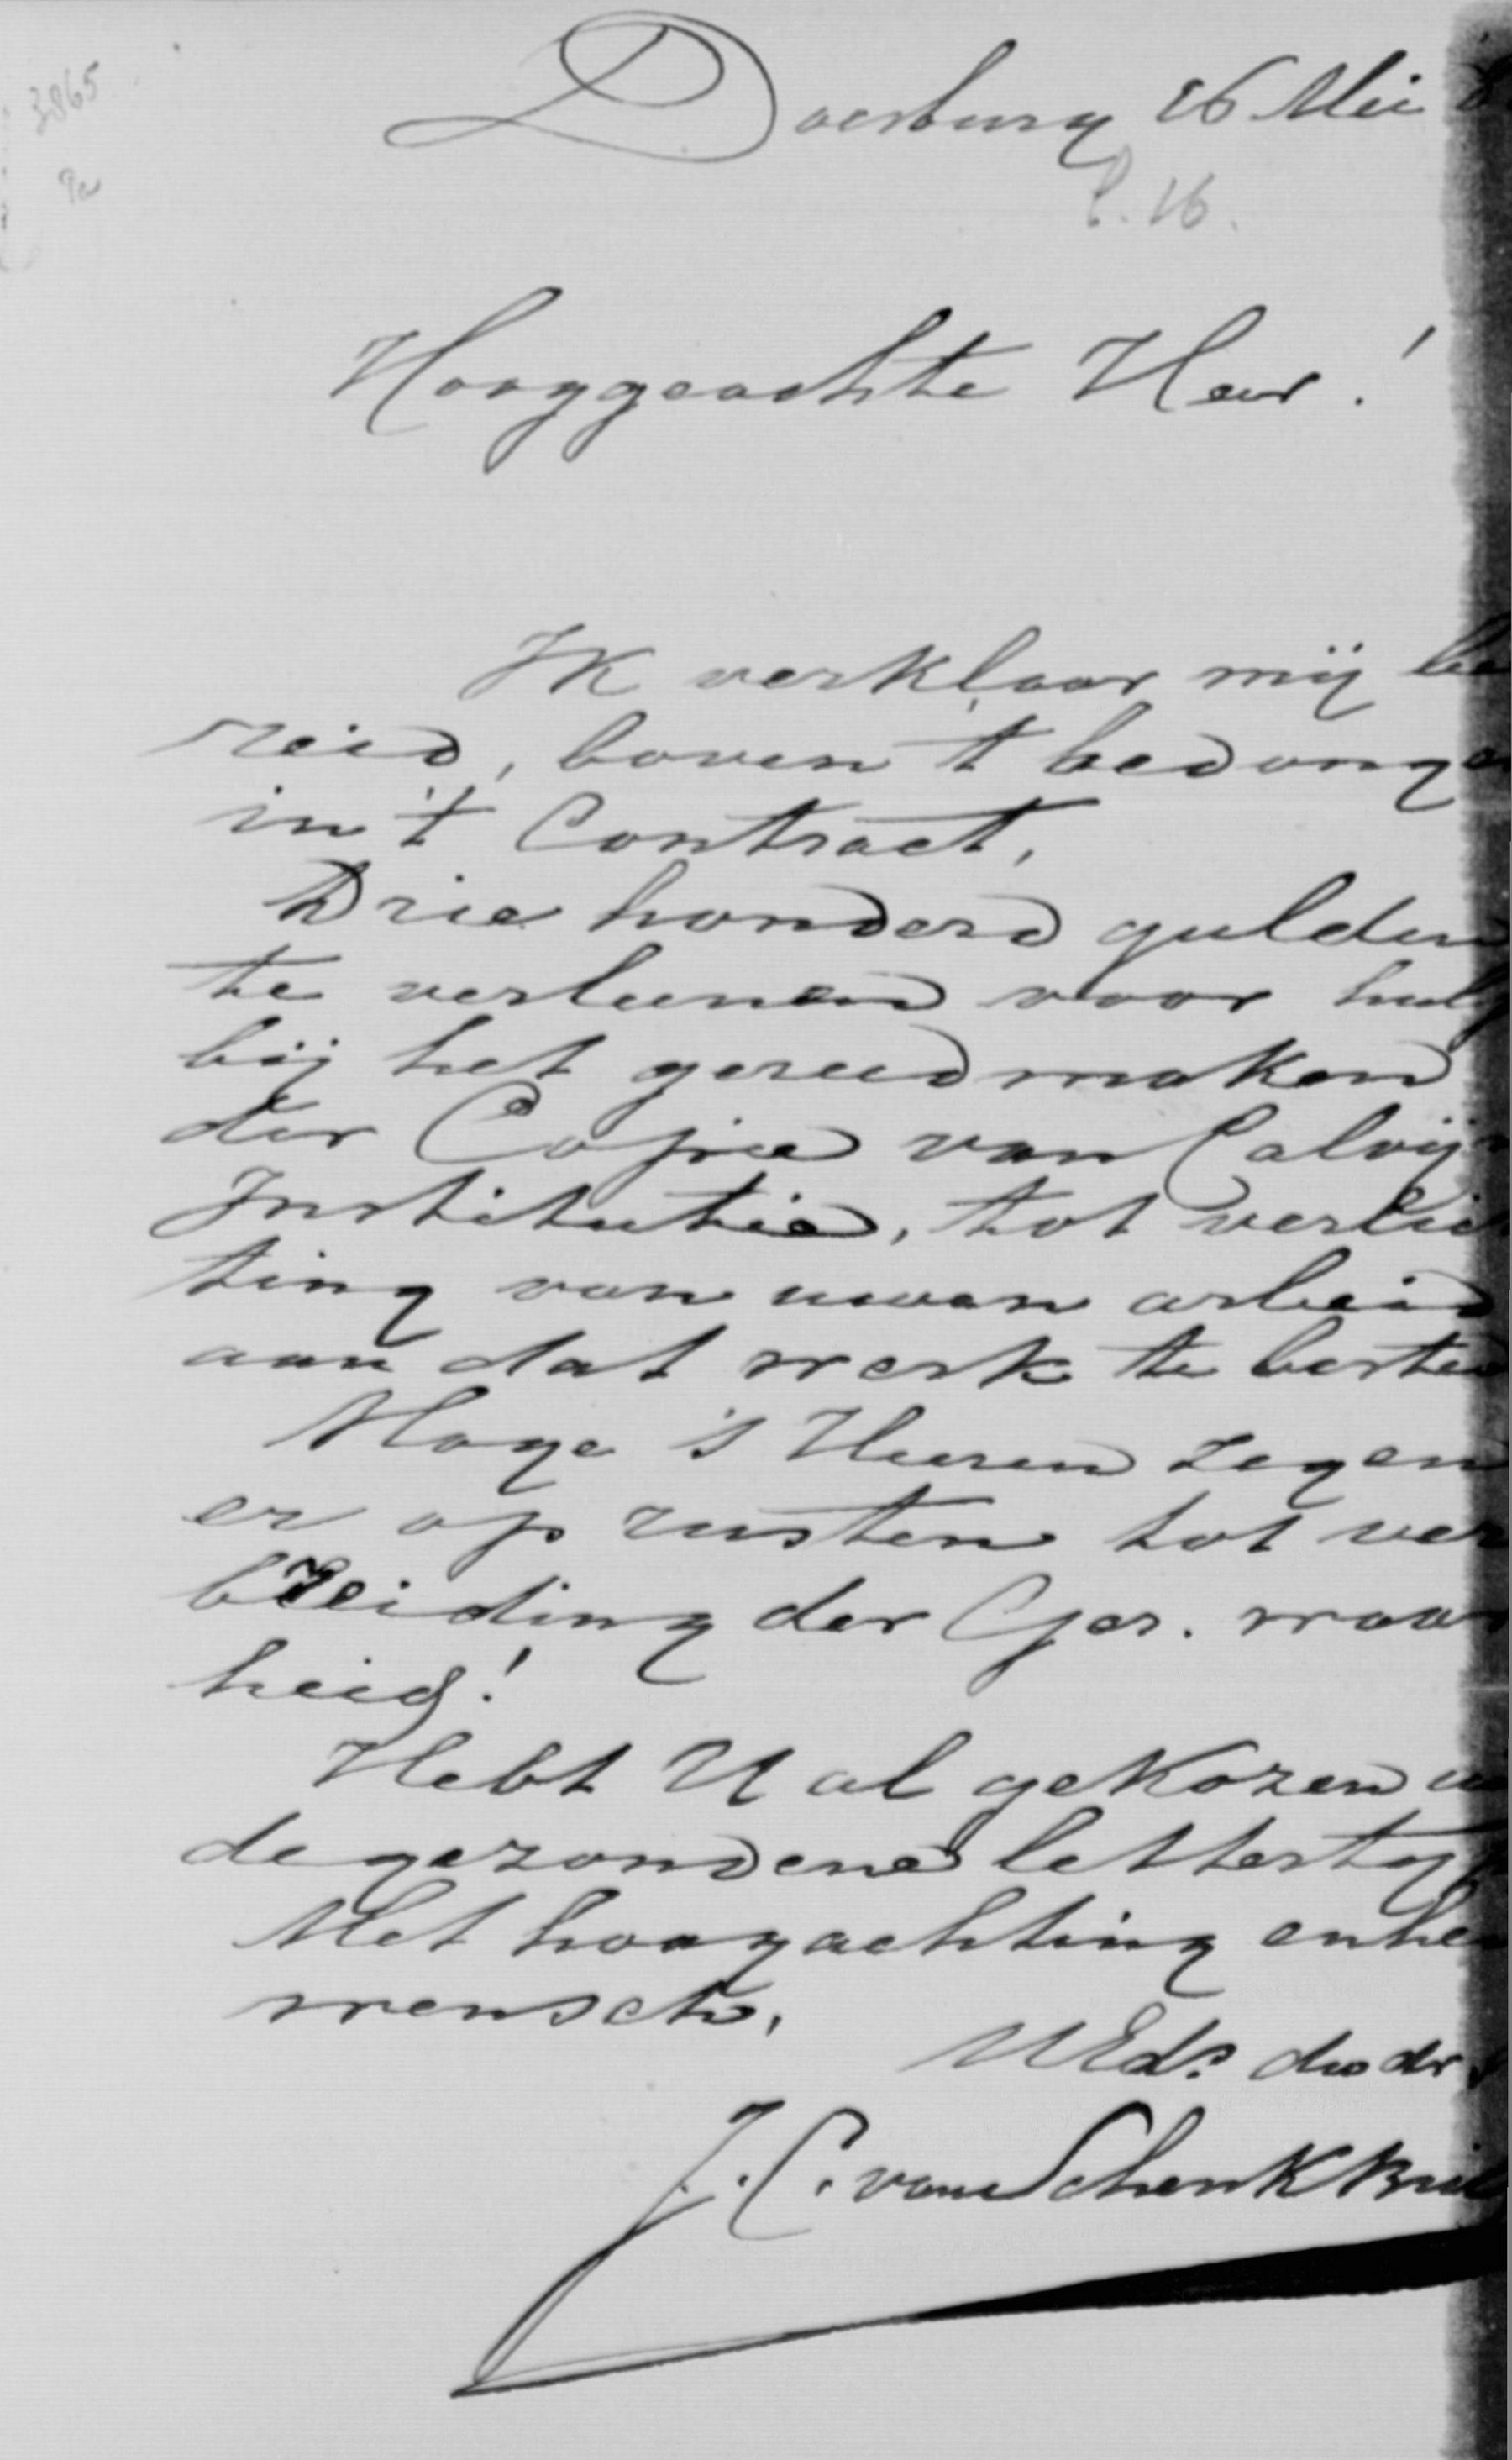 3865
Doesburg 26 Mei
P. 16.
Hooggeachte Heer!
Ik verklaar mij be
reid, boven 't bedongen
in 't Contract,
Drie honderd gulden
te verleenen voor hulp
bij het gereedmaken
der Copie van Calvijn
Institutie, tot verlich
ting van uwen arbeid
aan dat werk te besteed
Moge 's Heeren zegen
er op rusten tot ver
breiding der Ger. waar
heid!
Hebt U al gekozen
de gezondene lettertyp
Met hoogachting en
wensch,
UEds dwdr
J. C. van Schenk Bril